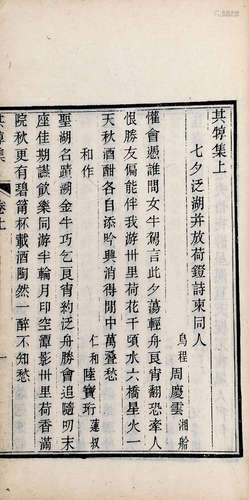 其犉集上
七夕泛湖并放荷鐙詩柬同人
烏程 周慶雲 湘舲
懽會憑誰問女牛駕言此夕蕩輕舟良宵翻恐牽人
恨勝友偏能伴我游卅里荷花千頃水六橋星火一
天秋酒酣各自添吟興消得閒中萬疊愁
和作
仁和 陸寶珩 蓮叔
聖湖名蹟溯金牛巧乞良宵約泛舟勝會追隨叨末
座佳期讌飲樂同游半輪月印空潭影卅里荷香滿
院秋更有碧筩杯載酒陶然一醉不知愁
其犉集 卷上 一